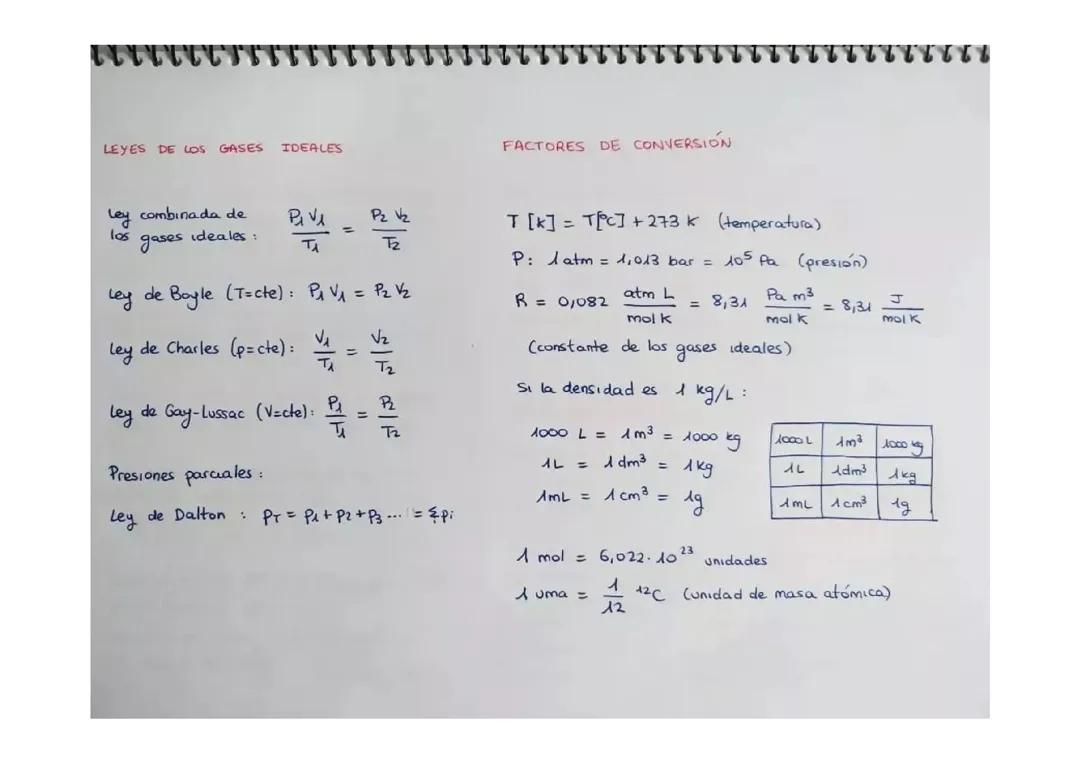 LEYES DE LOS GASES IDEALES
Ley combinada de
los gases ideales : P₁ V₁ / T₁ = P₂ V₂ / T₂
Ley de Boyle (T=cte) : P₁ V₁ = P₂ V₂
Ley de Charles (p=cte) : V₁ / T₁ = V₂ / T₂
Ley de Gay-Lussac (V=cte) : P₁ / T₁ = P₂ / T₂
Presiones parciales :
Ley de Dalton : PT = P₁ + P₂ + P₃ ... = Σ pi
FACTORES DE CONVERSIÓN
T [k] = T[ºC] + 273 K (temperatura)
P : 1 atm = 1,013 bar = 10⁵ Pa (presión)
R = 0,082 atm L / mol K = 8,31 Pa m³ / mol K = 8,31 J / mol K
(constante de los gases ideales)
Si la densidad es 1 kg/L :
1000 L = 1 m³ = 1000 kg
1L = 1 dm³ = 1 kg
1mL = 1 cm³ = 1g
1000 L 1m³ 1000 kg
1L 1dm³ 1kg
1mL 1cm³ 1g
1 mol = 6,022 · 10²³ unidades
1 uma = 1/12 ¹²C (unidad de masa atómica)